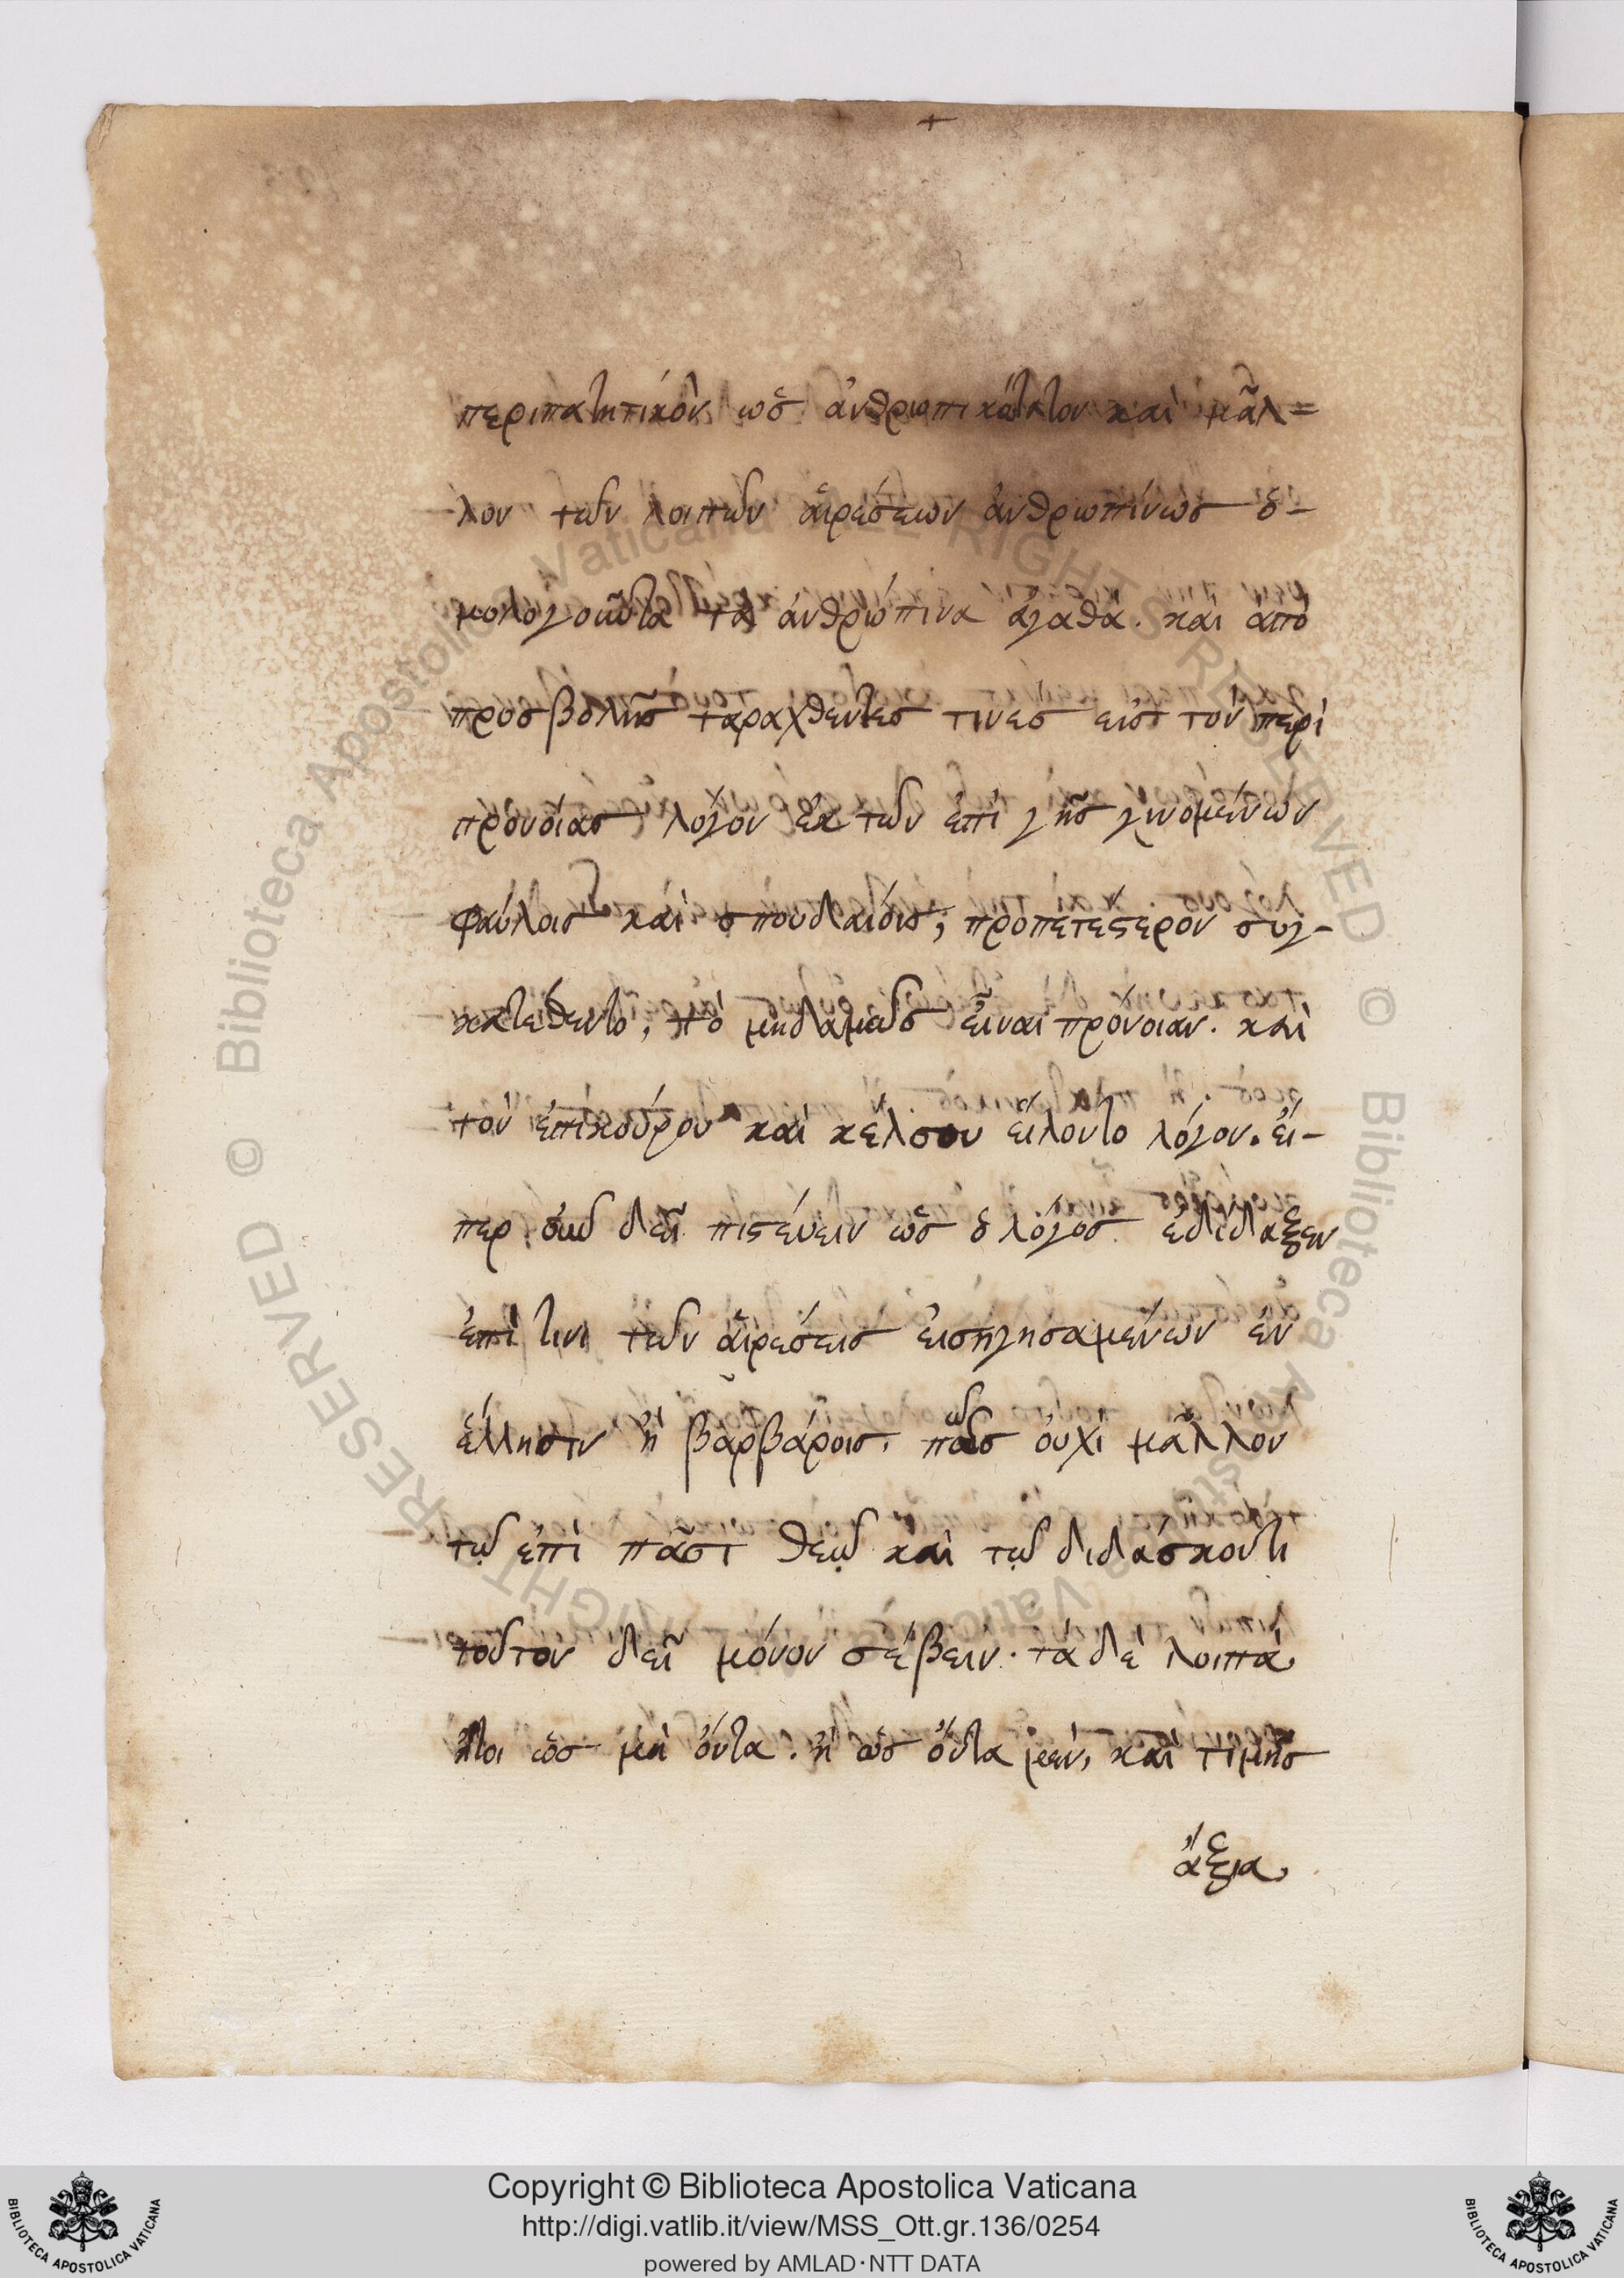 περιπατητικὸν ὡς ἀνθρωπικώτατον καὶ μᾶλ=
λον τῶν λοιπῶν αἱρέσεων ἀνθρωπίνως ὁ-
μολογοῦντα τὰ ἀνθρώπινα ἀγαθά. καὶ ἀπὸ
προσβολῆς ταραχθέντες τινες εἰς τὸν περὶ
προνοίας λόγον ἐκ τῶν ἐπὶ γῆς γινομένων
φαύλοις καὶ σπουδαίοις, προπετέστερον συγ-
κατέθεντο, τὸ μηδαμῶς εἶναι πρόνοιαν. καὶ
τὸν ἐπικούρου καὶ κέλσου εἵλοντο λόγον. εἴ-
περ οὖν δεῖ πιστεύειν ὡς ὁ λόγος ἐδίδαξεν
ἐπὶ τινὶ τῶν αἱρέσεις εἰσηγησαμένων ἐν
ἕλλησιν ἢ βαρβάροις. πῶς οὐχὶ μᾶλλον
τῷ ἐπὶ πᾶσι θεῷ καὶ τῷ διδάσκοντι
τοῦτον δεῖν μόνον σέβειν. τὰ δὲ λοιπὰ
ἤτοι ὡς μὴ ὄντα. ἢ ὡς ὄντα μὲν, καὶ τιμῆς
ἄξια,
© Biblioteca Apostolica Vaticana ALL RIGHTS RESERVED
© Biblioteca Apostolica Vaticana ALL RIGHTS RESERVED
Copyright © Biblioteca Apostolica Vaticana
http://digi.vatlib.it/view/MSS_Ott.gr.136/0254
powered by AMLAD·NTT DATA
BIBLIOTECA APOSTOLICA VATICANA
BIBLIOTECA APOSTOLICA VATICANA